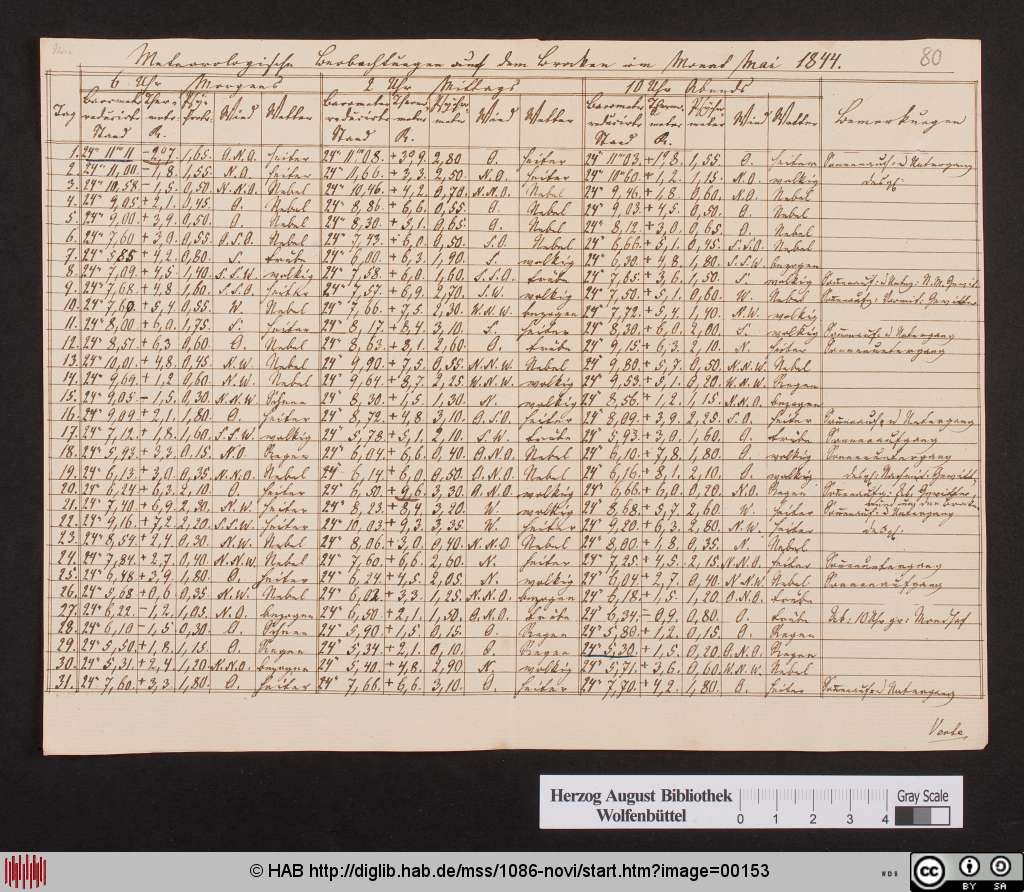 80
Meteorologische Beobachtungen auf dem Brocken im Monat Mai 1844.
6 Uhr Morgens 2 Uhr Mittags 10 Uhr Abends
Tag Barometer reducirter Stand Thermometer R. Wind Wetter Barometer reducirter Stand Thermometer R. Wind Wetter Barometer reducirter Stand Thermometer R. Wind Wetter Bemerkungen
1. 24" 11"'11 -2,07. 1,65. O.N.O. heiter 24" 11"'08. +3,09. 2,80 O. heiter 24" 11"'03. +1,08. 1,55 O. heiter
2. 24" 11,00. -1,8. 1,55. N.O. heiter 24" 11,66. +3,3. 2,50. N.O. heiter 24" 10,60. +1,2. 1,15. N.O. wolkig
3. 24" 10,58 -1,5. 0,50. N.N.O. Nebel 24" 10,46. +4,2. 0,70. N.N.O. Nebel 24" 9,46. +1,8. 0,60. N.O. Nebel
4. 24" 9,05. +2,1. 0,45 O. Nebel 24" 8,86. +6,6. 0,55. O. Nebel 24" 9,03. +4,5. 0,50. O. Nebel
5. 24" 9,00. +3,9. 0,50. O. Nebel 24" 8,30. +5,1. 0,65. O. Nebel 24" 8,12. +3,0. 0,65. O. Nebel
6. 24" 7,60 +3,0. 0,55 O.S.O. Nebel 24" 7,43. +6,0. 0,50. S.O. Nebel 24" 6,66. +5,1. 0,45. S.S.O. Nebel
7. 24" 5,85 +4,2. 0,80. S. trübe 24" 6,00. +6,3. 1,90. S. wolkig 24" 6,30 +4,8. 1,80 S.S.W. bezogen
8. 24" 7,09. +4,5. 1,40 S.S.W. wolkig 24" 7,58. +6,0. 1,60. S.S.O. trübe 24" 7,65. +3,6. 1,50. S. wolkig
9. 24" 7,68. +4,8. 1,60. S.S.O. heiter 24" 7,57. +6,9. 2,70. S.W. wolkig 24" 7,50. +5,1. 0,60. W. Nebel
10. 24" 7,60. +5,4 0,55 W. Nebel 24" 7,66. +7,5. 2,30. W.N.W. bezogen 24" 7,72. +5,4. 1,40. N.W. wolkig
11. 24" 8,00 +6,0. 1,75. S. heiter 24" 8,17. +8,4. 3,10. S. heiter 24" 8,30 +6,0. 2,00. S. wolkig
12. 24" 8,57. +6,3 0,60 O. Nebel 24" 8,63. +8,1. 2,60. O. trübe 24" 9,15. +6,3. 2,10. N. heiter
13. 24" 10,01. +4,8. 0,45. N.W. Nebel 24" 9,90. +7,5. 0,55. N.N.W. Nebel 24" 9,80. +5,7. 0,50. N.N.W. Nebel
14. 24" 9,69. +1,2. 0,60. N.W. Nebel 24" 9,64. +8,7. 2,25. W.N.W. wolkig 24" 9,53. +5,1. 0,20. W.N.W. Regen
15. 24" 9,05. -1,5. 0,30. N.N.W. Schnee 24" 8,30. +1,5. 1,30. N. wolkig 24" 8,56. +1,2. 1,15. N.N.O. bezogen
16. 24" 9,09. +2,1. 1,80. O. heiter 24" 8,72. +4,8. 3,10. O.S.O. heiter 24" 8,09. +3,9. 2,25. S.O. heiter
17. 24" 7,12. +1,8. 1,60. S.S.W. wolkig 24" 5,78. +5,1. 2,10. S.W. trübe 24" 5,93. +3,0. 1,60. O. trübe
18. 24" 5,93. +3,3. 0,15. N.O. Regen 24" 6,04. +6,6. 0,40. O.N.O. Nebel 24" 6,10. +7,8. 1,80. O. wolkig
19. 24" 6,13. +3,0. 0,35. N.N.O. Nebel 24" 6,14. +6,0. 0,50. O.N.O. Nebel 24" 6,16. +8,1. 2,10. O. wolkig
20. 24" 6,24. +6,3. 2,10. O. heiter 24" 6,50. +9,6. 3,30. O.N.O. wolkig 24" 6,66. +6,0. 0,20. N.O. Regen
21. 24" 7,40. +6,9. 2,30. N.W. heiter 24" 8,23. +8,4. 3,20. W. wolkig 24" 8,68. +5,7. 2,60. W. heiter
22. 24" 9,16. +7,2. 2,20. S.S.W. heiter 24" 10,03. +9,3. 3,35 W. heiter 24" 9,20. +6,3. 2,80. N.W. heiter
23. 24" 8,54. +2,4. 0,30. N.W. Nebel 24" 8,06. +3,0. 0,40. N.N.O. Nebel 24" 8,00. +1,8. 0,35. N. Nebel
24. 24" 7,84. +2,7. 0,40. N.N.W. Nebel 24" 7,60. +6,6. 2,60. N. heiter 24" 7,25. +4,5. 2,15. N.N.O. heiter
25. 24" 6,48. +3,9. 1,80. O. heiter 24" 6,24. +4,5. 2,05. N. wolkig 24" 6,04. +2,7. 0,40. N.N.W. Nebel
26. 24" 5,68 +0,6. 0,35. N.W. Nebel 24" 6,02. +3,3. 1,25. N.N.O. bezogen 24" 6,18. +1,5. 1,20. O.N.O. trübe
27. 24" 6,22. -1,2. 1,05. N.O. bezogen 24" 6,50 +2,1. 1,50. O.N.O. trübe 24" 6,34. -0,9. 0,80. O. trübe
28. 24" 6,10 -1,5. 0,30. O. Schnee 24" 5,40 +1,5. 0,15. O. Regen 24" 5,80. +1,2. 0,15. O. Regen
29. 24" 5,50. +1,8. 1,15. O. Regen 24" 5,34. +2,1. 0,10. O. Regen 24" 5,30. +1,5. 0,20. O.N.O. Regen
30. 24" 5,31. +2,4. 1,20. N.N.O. bezogen 24" 5,40. +4,8. 2,90. N. wolkig 24" 5,71. +3,6. 0,60. N.N.W. Nebel
31. 24" 7,60. +3,3. 1,80. O. heiter 24" 7,66. +6,6. 3,10. O. heiter 24" 7,70. +4,2. 1,80. O. heiter
Verte
Herzog August Bibliothek
Wolfenbüttel
0 1 2 3 4
Gray Scale
© HAB http://diglib.hab.de/mss/1086-novi/start.htm?image=00153
WDB
CC BY SA